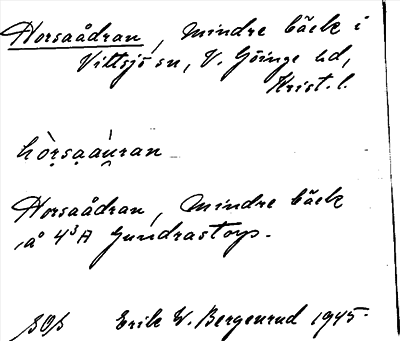 Horsaådran, mindre bäck i
Vittsjö sn, V. Göinge hd,
Krist. l.
hòrsaáuran
Horsaådran, mindre bäck
å 4³A Gundrastorp.
Erik W. Bergenrud 1945.